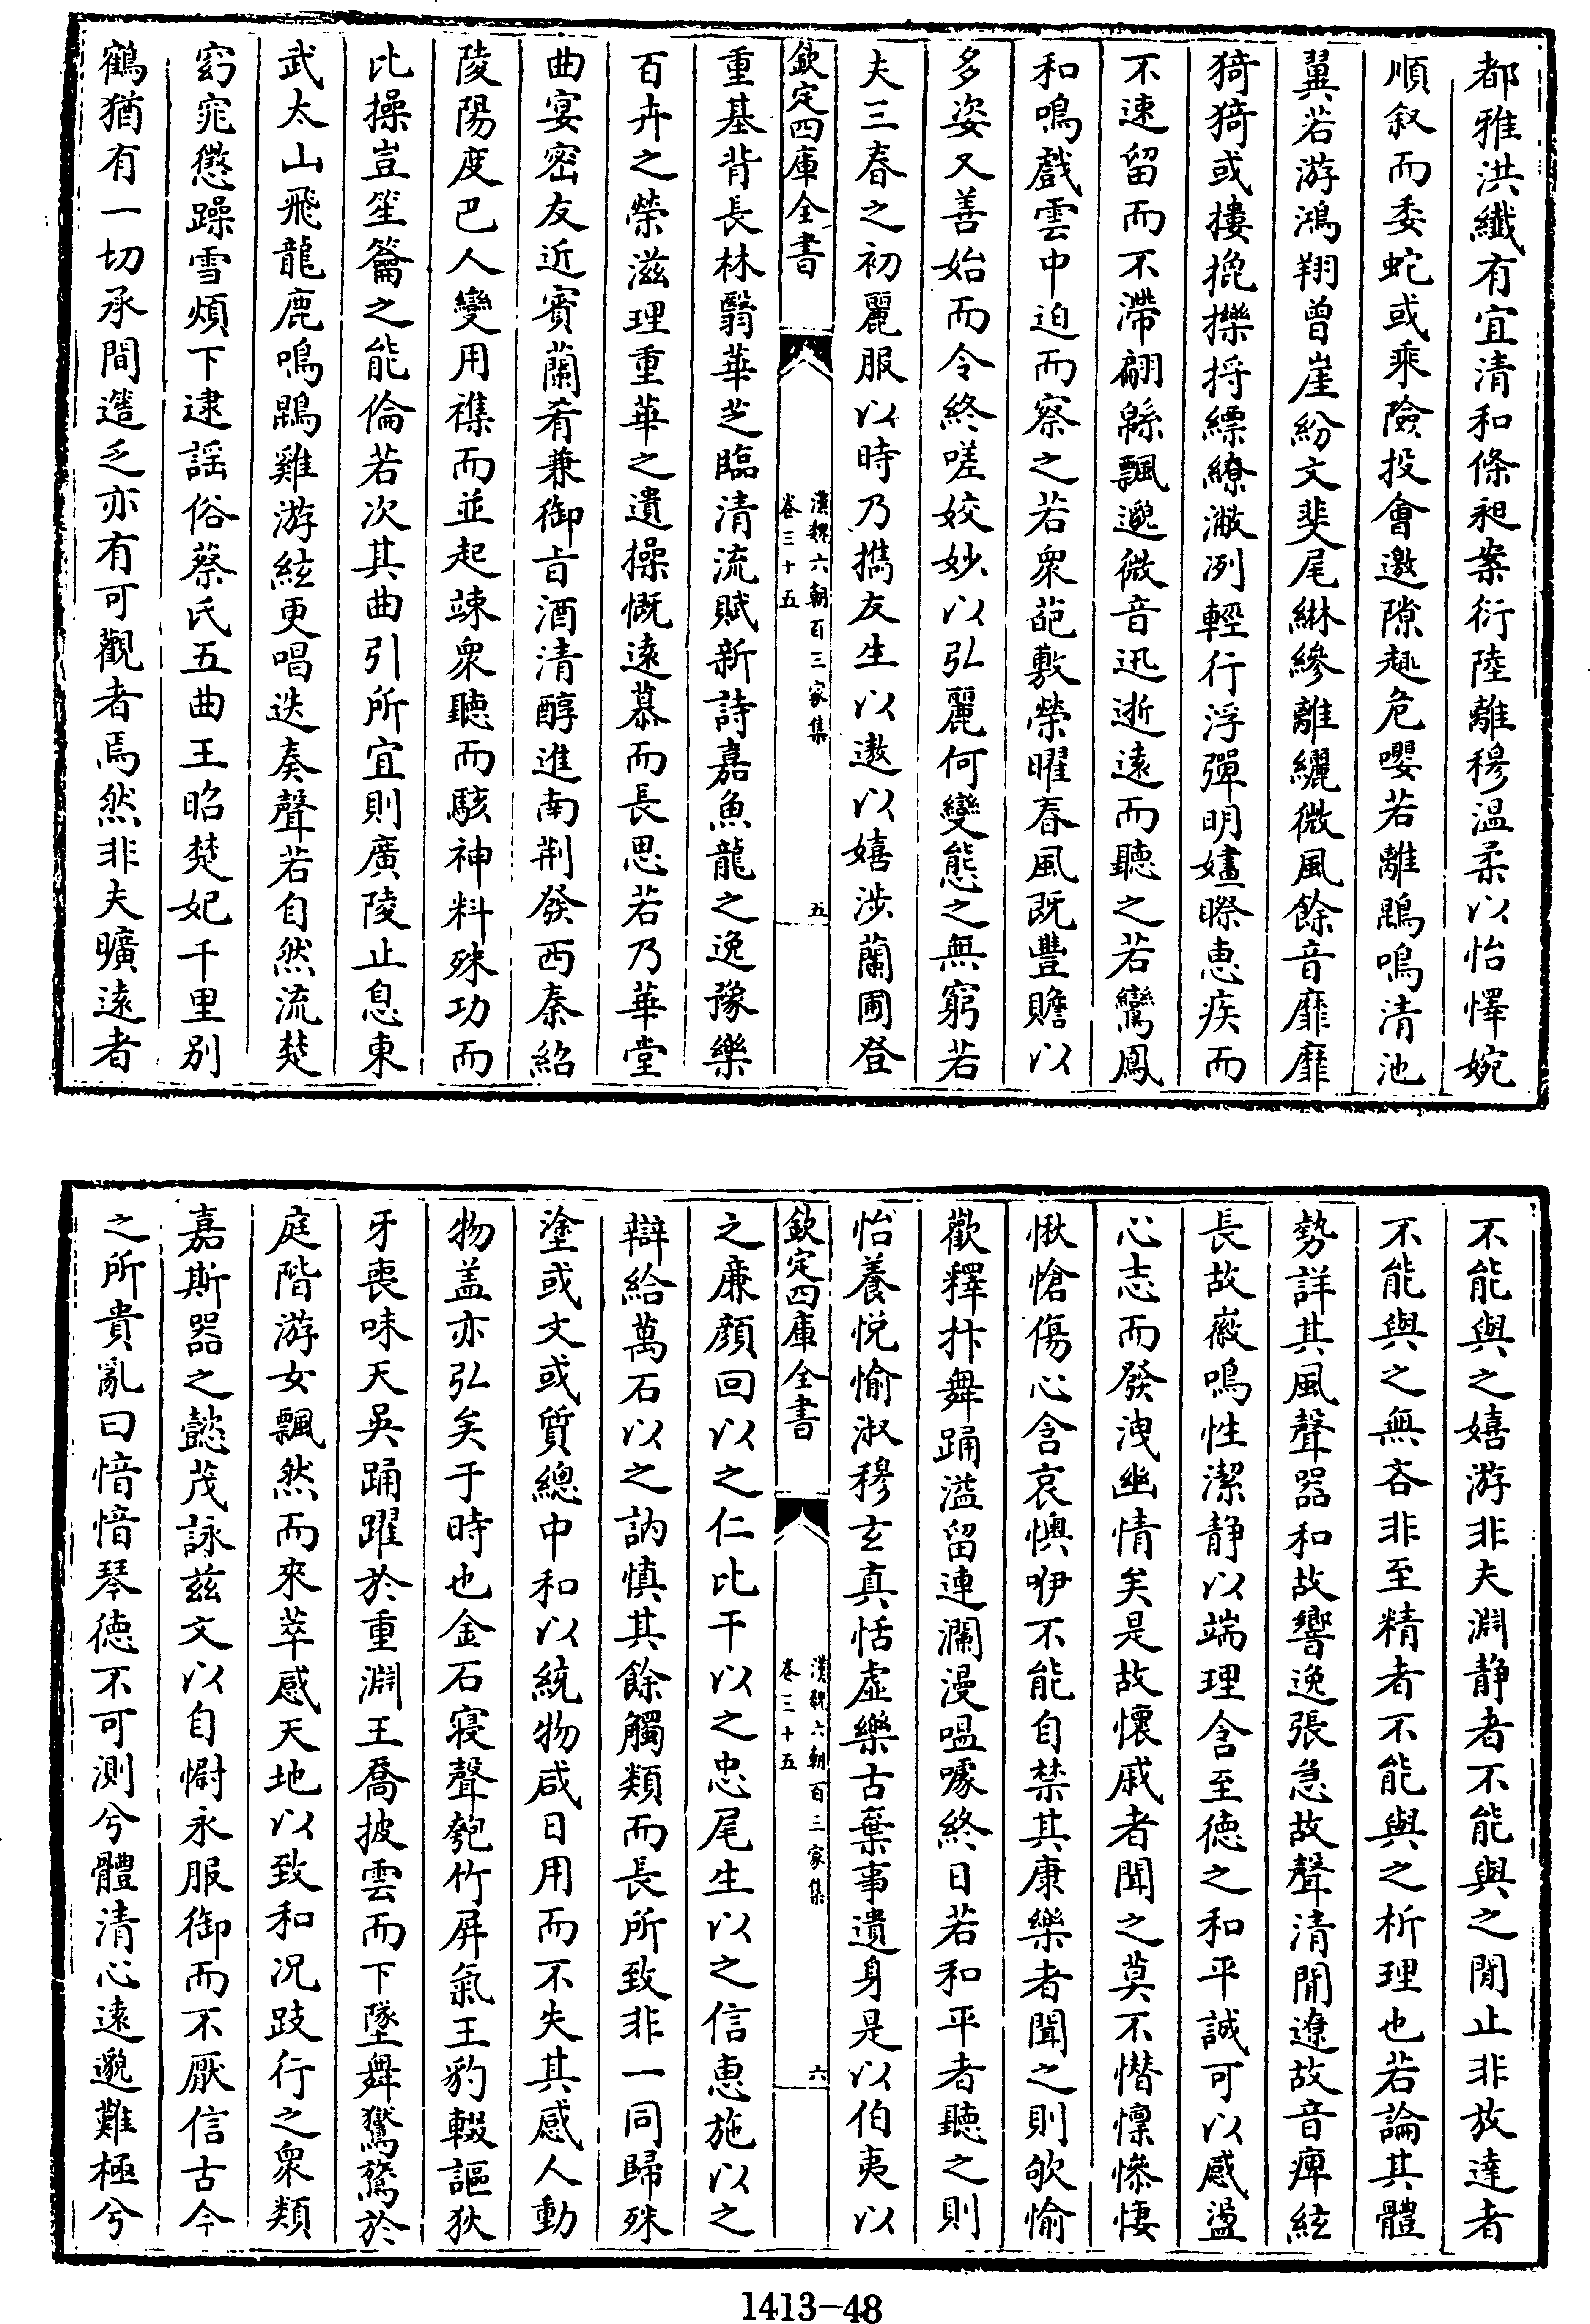 都雅洪纖有宜清和條昶案衍陸離穆温柔以怡懌婉
順叙而委蛇或乘險投會邀隙趨危嚶若離鵾鳴清池
翼若游鴻翔曽崖紛文斐尾綝縿離纚微風餘音靡靡
猗猗或摟㧙擽捋縹繚潎冽輕行浮彈明嫿𥉻惠疾而
不速留而不滯翩緜飄邈微音迅逝逺而聽之若鸞鳳
和鳴戲雲中迫而察之若衆葩敷榮曜春風既豐贍以
多姿又善始而令終嗟姣妙以弘麗何變態之無窮若
夫三春之初麗服以時乃擕友生以遨以嬉涉蘭圃登
欽定四庫全書
漢魏六朝百三家集
卷三十五
五
重基背長林翳華芝臨清流賦新詩嘉魚龍之逸豫樂
百卉之榮滋理重華之遺操慨逺慕而長思若乃華堂
曲宴密友近賓蘭肴兼御旨酒清醇進南荆發西秦紹
陵陽度巴人變用襍而並起竦衆聽而駭神料殊功而
比操豈笙籥之能倫若次其曲引所宜則廣陵止息東
武太山飛龍鹿鳴鵾雞游絃更唱迭奏聲若自然流楚
窈窕懲躁雪煩下逮謡俗蔡氏五曲王昭楚妃千里别
鶴猶有一切承間簉乏亦有可觀者焉然非夫曠逺者
不能與之嬉游非夫淵静者不能與之閒止非放達者
不能與之無吝非至精者不能與之析理也若論其體
勢詳其風聲器和故響逸張急故聲清閒遼故音痺絃
長故徽鳴性潔静以端理含至徳之和平誠可以感盪
心志而發洩幽情矣是故懷戚者聞之莫不憯懍慘悽
愀愴傷心含哀懊咿不能自禁其康樂者聞之則欨愉
歡釋抃舞踊溢留連瀾漫嗢噱終日若和平者聽之則
怡養悦愉淑穆玄真恬虚樂古棄事遺身是以伯夷以
欽定四庫全書
漢魏六朝百三家集
卷三十五
六
之廉顔回以之仁比干以之忠尾生以之信惠施以之
辯給萬石以之訥慎其餘觸類而長所致非一同歸殊
塗或文或質總中和以統物咸日用而不失其感人動
物盖亦弘矣于時也金石寢聲匏竹屏氣王豹輟謳狄
牙喪味天吳踊躍於重淵王喬披雲而下墜舞鸑鷟於
庭階游女飄然而來萃感天地以致和况跂行之衆類
嘉斯器之懿茂詠兹文以自慰永服御而不厭信古今
之所貴亂曰愔愔琴徳不可測兮體清心逺邈難極兮
1413-48